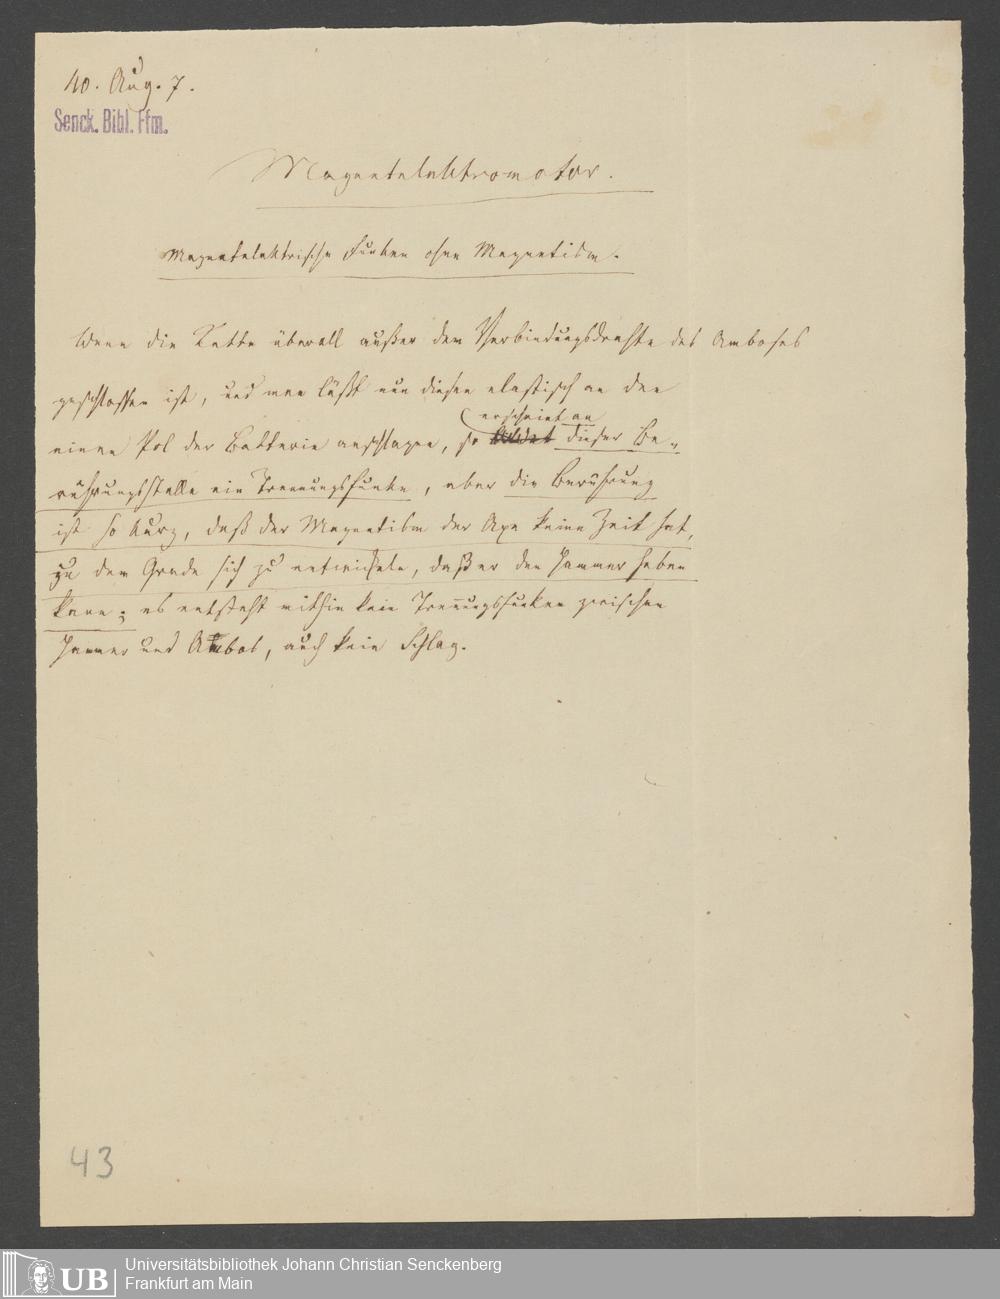 40. Aug. 7.
Senck. Bibl. Ffm.
Magnetelektromotor.
Magnetelektrische Funken ohne Magnetism.
Wenn die Kette überall außer dem Verbindungsdrahte des Amboses
geschlossen ist, und man läßt nun diesen elastisch an den
erscheint an
einen Pol der Batterie anschlagen, so bildet dieser Be-
rührungsstelle ein Trennungsfunke, aber die Berührung
ist so kurz, daß der Magnetism der Axe keine Zeit hat,
zu dem Grade sich zu entwickeln, daß er den Hammer heben
kann; es entsteht mithin kein Trennungsfunken zwischen
Hammer und Ambos, auch kein Schlag.
43
UB
Universitätsbibliothek Johann Christian Senckenberg
Frankfurt am Main